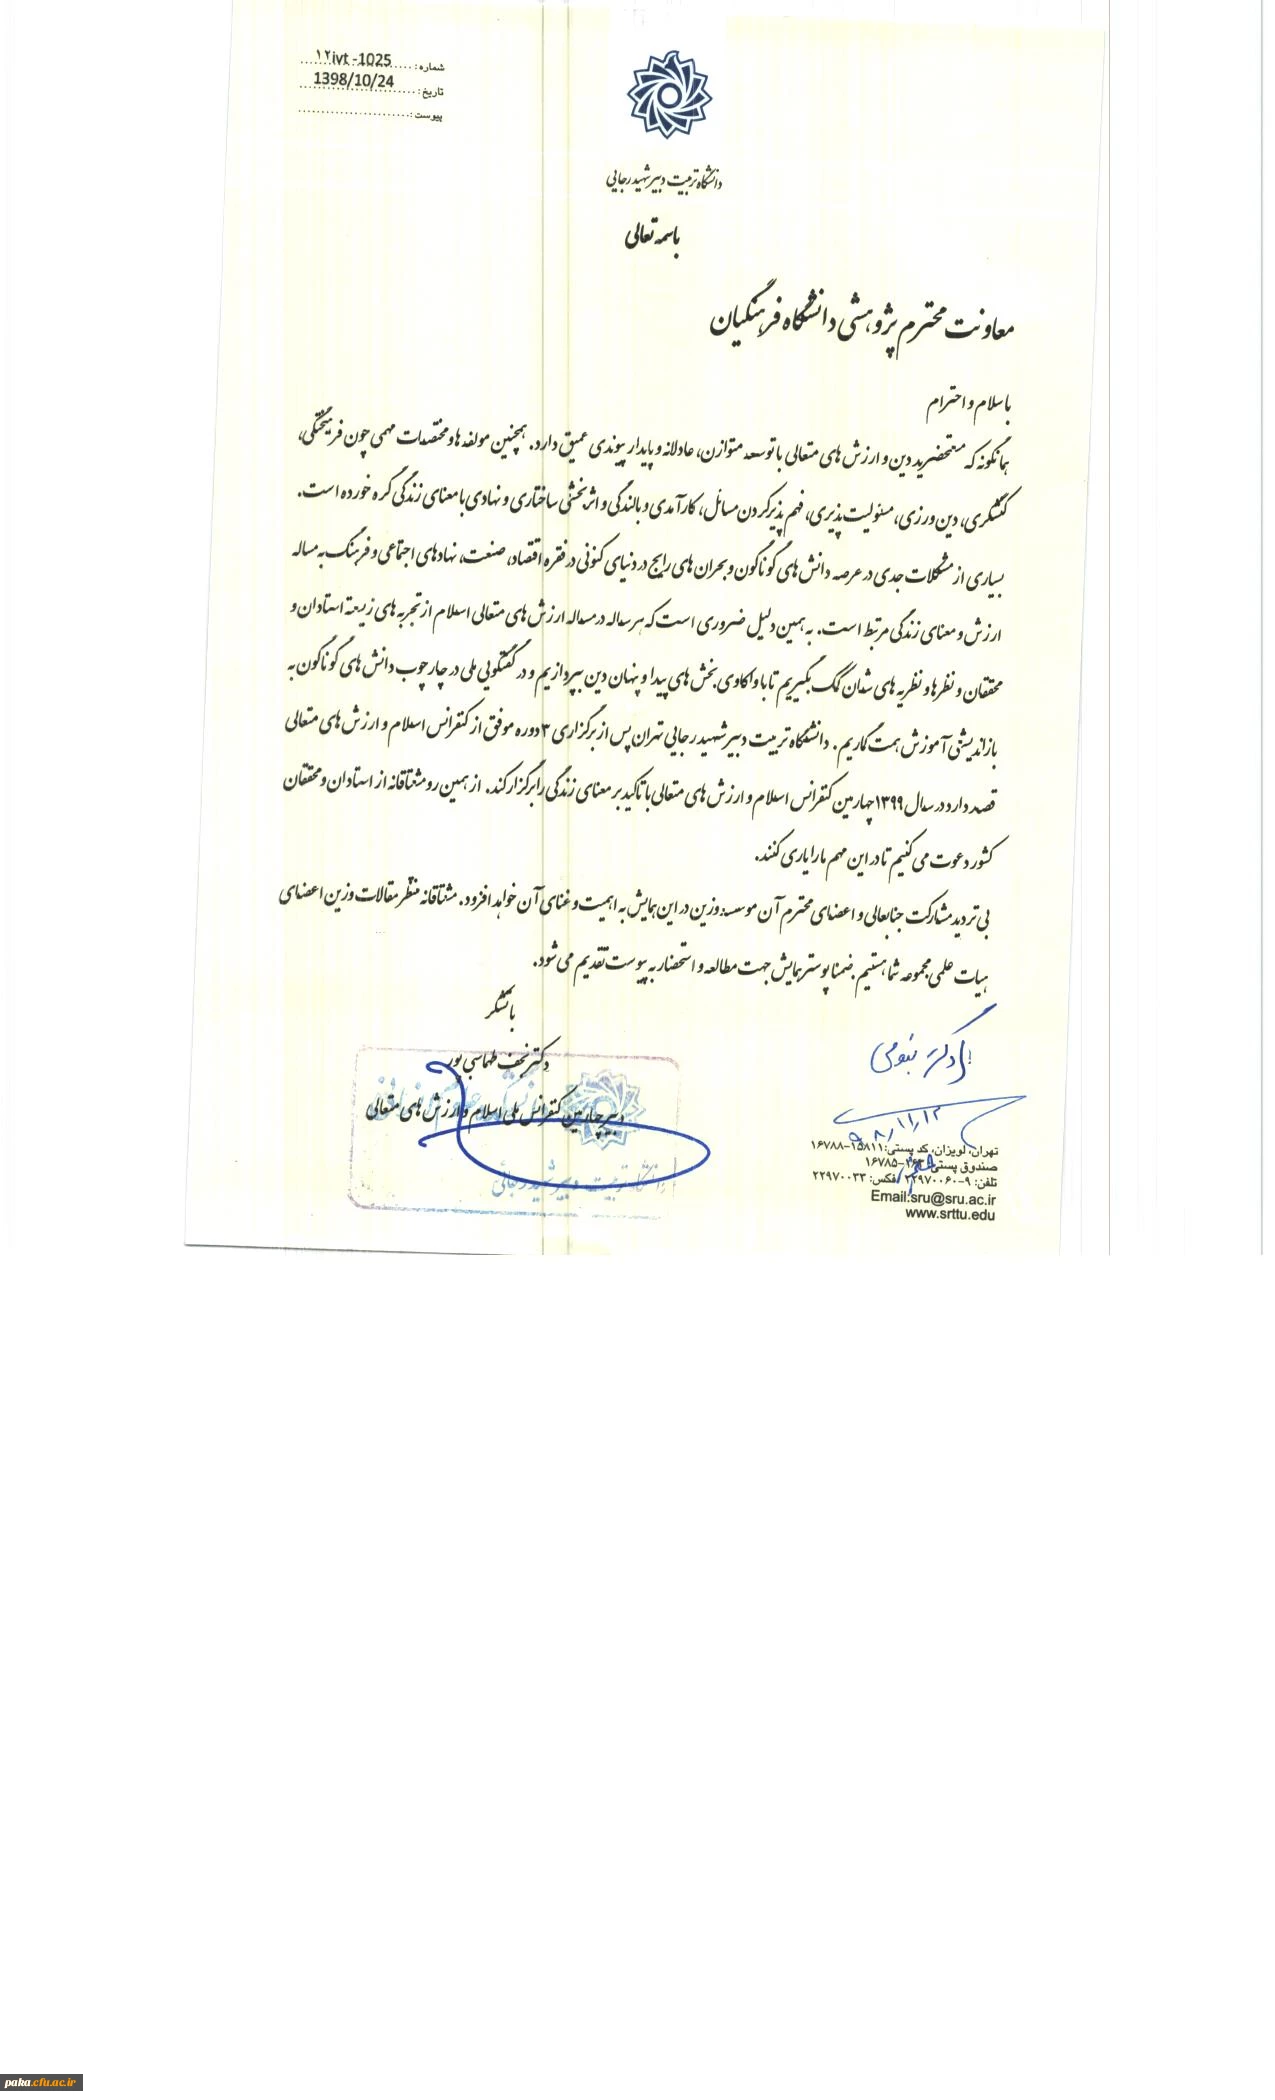 شماره: ۱۲ivt -1025
تاریخ: 1398/10/24
پیوست:
دانشگاه تربیت دبیر شهید رجایی
باسمه تعالی
معاونت محترم پژوهشی دانشگاه فرهنگیان
با سلام و احترام
همانگونه که مستحضرید دین و ارزش های متعالی با توسعه متوازن، عادلانه و پایدار پیوندی عمیق دارد. همچنین مولفه ها و مختصات مهمی چون فرهیختگی،
کنشگری، دین ورزی، مسئولیت پذیری، فهم پذیر کردن مسائل، کارآمدی و بالندگی و اثربخشی ساختاری و نهادی با معنای زندگی گره خورده است.
بسیاری از مشکلات جدی در عرصه دانش های گوناگون و بحران های رایج در دنیای کنونی در فقره اقتصاد، صنعت، نهادهای اجتماعی و فرهنگ به مساله
ارزش و معنای زندگی مرتبط است. به همین دلیل ضروری است که هر ساله در مساله ارزش های متعالی اسلام از تجربه های زیسته استادان و
محققان و نظرها و نظریه های شان کمک بگیریم تا با واکاوی بخش های پیدا و پنهان دین بپردازیم و در گفتگویی ملی در چارچوب دانش های گوناگون به
بازاندیشی آموزش همت گماریم. دانشگاه تربیت دبیر شهید رجایی تهران پس از برگزاری ۳ دوره موفق از کنفرانس اسلام و ارزش های متعالی
قصد دارد در سال ۱۳۹۹ چهارمین کنفرانس اسلام و ارزش های متعالی با تاکید بر معنای زندگی را برگزار کند. از همین رو مشتاقانه از استادان و محققان
کشور دعوت می کنیم تا در این مهم ما را یاری کنند.
بی تردید مشارکت جنابعالی و اعضای محترم آن موسسه وزین در این همایش به اهمیت و غنای آن خواهد افزود. مشتاقانه منتظر مقالات وزین اعضای
هیات علمی مجموعه شما هستیم. ضمنا پوستر همایش جهت مطالعه و استحضار به پیوست تقدیم می شود.
با تشکر
دکتر نجف طهماسبی پور
دبیر چهارمین کنفرانس ملی اسلام و ارزش های متعالی
دانشگاه تربیت دبیر شهید رجائی
۹۸/۱۱/۱۲
تهران، لویزان، کد پستی: ۱۵۸۱۱-۱۶۷۸۸
صندوق پستی: ۱۶۳-۱۶۷۸۵
تلفن: ۹-۲۲۹۷۰۰۶۰ فکس: ۲۲۹۷۰۰۳۳
Email:sru@sru.ac.ir
www.srttu.edu
paka.cfu.ac.ir